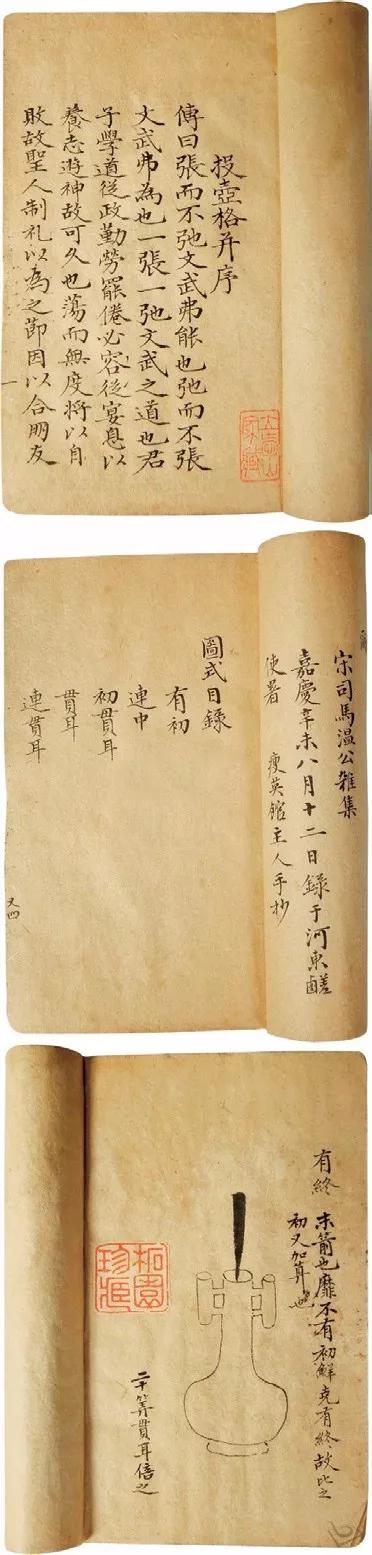 投壺格并序
傳曰張而不弛文武弗能也弛而不張
文武弗為也一張一弛文武之道也君
子學道從政勤勞罷倦必容從宴息以
養志遊神故可久也蕩而無度將以自
敗故聖人制礼以為之節因以合朋友
宋司馬温公雜集
嘉慶辛未八月十二日錄于河東鹺
使署 瘦英館主人手抄
圖式目錄
有初
連中
初貫耳
貫耳
連貫耳
又四
有終 末箭也靡不有初鮮克有終故比之
初又加算也
二十筭貫耳倍之
柘園
珍藏